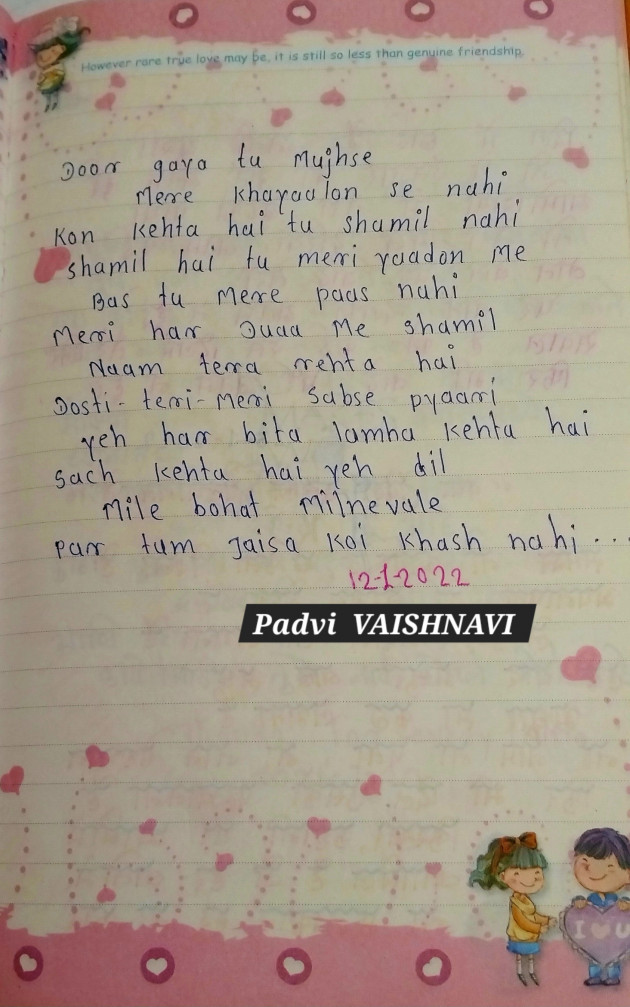 However rare true love may be, it is still so less than genuine friendship.
Door gaya tu Mujhse
Mere khayaalon se nahi
Kon kehta hai tu shamil nahi
shamil hai tu meri yaadon me
Bas tu mere paas nahi
Meri har Duaa Me shamil
Naam tera rehta hai
Dosti-teri-meri sabse pyaari
yeh har bita lamha kehta hai
sach kehta hai yeh dil
Mile bohat milnevale
par tum jaisa koi khash nahi...
12-1-2022
Padvi VAISHNAVI
I U